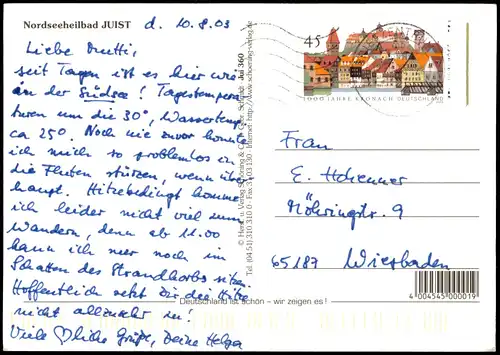 Nordseeheilbad JUIST
d. 10.8.03
Liebe Mutti,
seit Tagen ist es hier wie
an der Südsee! Tagestempera-
turen um die 30°, Wassertemp.
ca 25°. Noch nie zuvor konnte
ich mich so problemlos in
die Fluten stürzen, wenn über-
haupt. Hitzebedingt komme
ich leider nicht viel zum
Wandern, denn ab 11.00
kann ich nur noch im
Schatten des Strandkorbs sitzen.
Hoffentlich setzt Dir die Hitze
nicht allzusehr zu!
Viele liebe Grüße, Deine Helga
© Herst. u. Verlag Schöning & Co + Gebr. Schmidt
Tel. (04 51) 310 310 · Fax 3 1 03 130 · Internet: http://www.schoening-verlag.de
Ju 360
Deutschland ist schön – wir zeigen es!
45
1000 JAHRE KRONACH DEUTSCHLAND
Frau
E.
Möhringstr. 9
65187 Wiesbaden
4 004545 000019